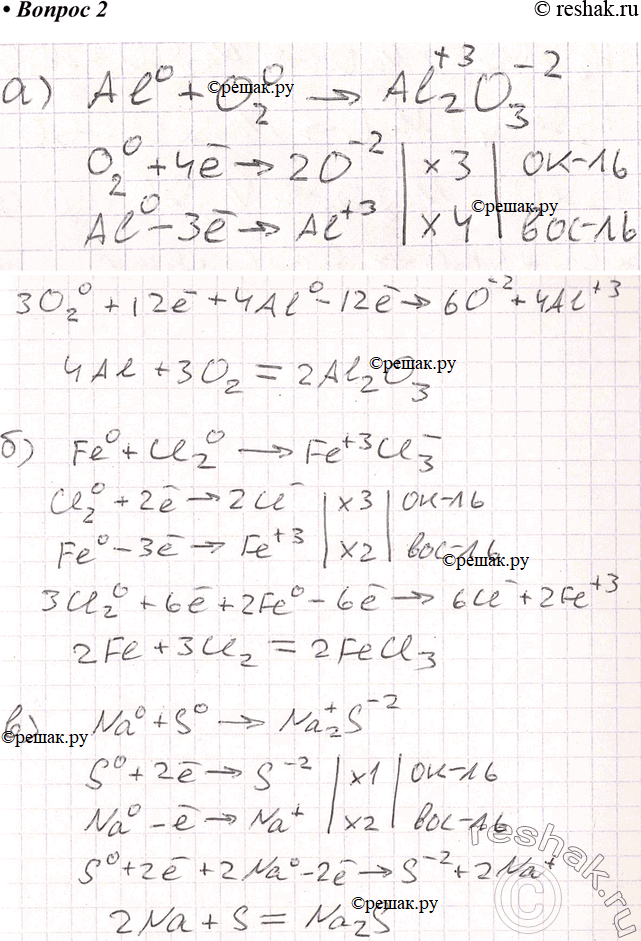 • Вопрос 2
© reshak.ru
а) Al⁰ + O₂⁰ → Al₂⁺³O₃⁻²
©решак.ру
O₂⁰ + 4ē → 2O⁻² | ×3 | ок-ль
Al⁰ - 3ē → Al⁺³ | ×4 | вос-ль
©решак.ру
3O₂⁰ + 12ē + 4Al⁰ - 12ē → 6O⁻² + 4Al⁺³
4Al + 3O₂ = 2Al₂O₃
©решак.ру
б) Fe⁰ + Cl₂⁰ → Fe⁺³Cl₃⁻
Cl₂⁰ + 2ē → 2Cl⁻ | ×3 | ок-ль
Fe⁰ - 3ē → Fe⁺³ | ×2 | вос-ль
©решак.ру
3Cl₂⁰ + 6ē + 2Fe⁰ - 6ē → 6Cl⁻ + 2Fe⁺³
2Fe + 3Cl₂ = 2FeCl₃
в) Na⁰ + S⁰ → Na₂⁺S⁻²
©решак.ру
S⁰ + 2ē → S⁻² | ×1 | ок-ль
Na⁰ - ē → Na⁺ | ×2 | вос-ль
S⁰ + 2ē + 2Na⁰ - 2ē → S⁻² + 2Na⁺
2Na + S = Na₂S
©решак.ру
reshak.ru
©